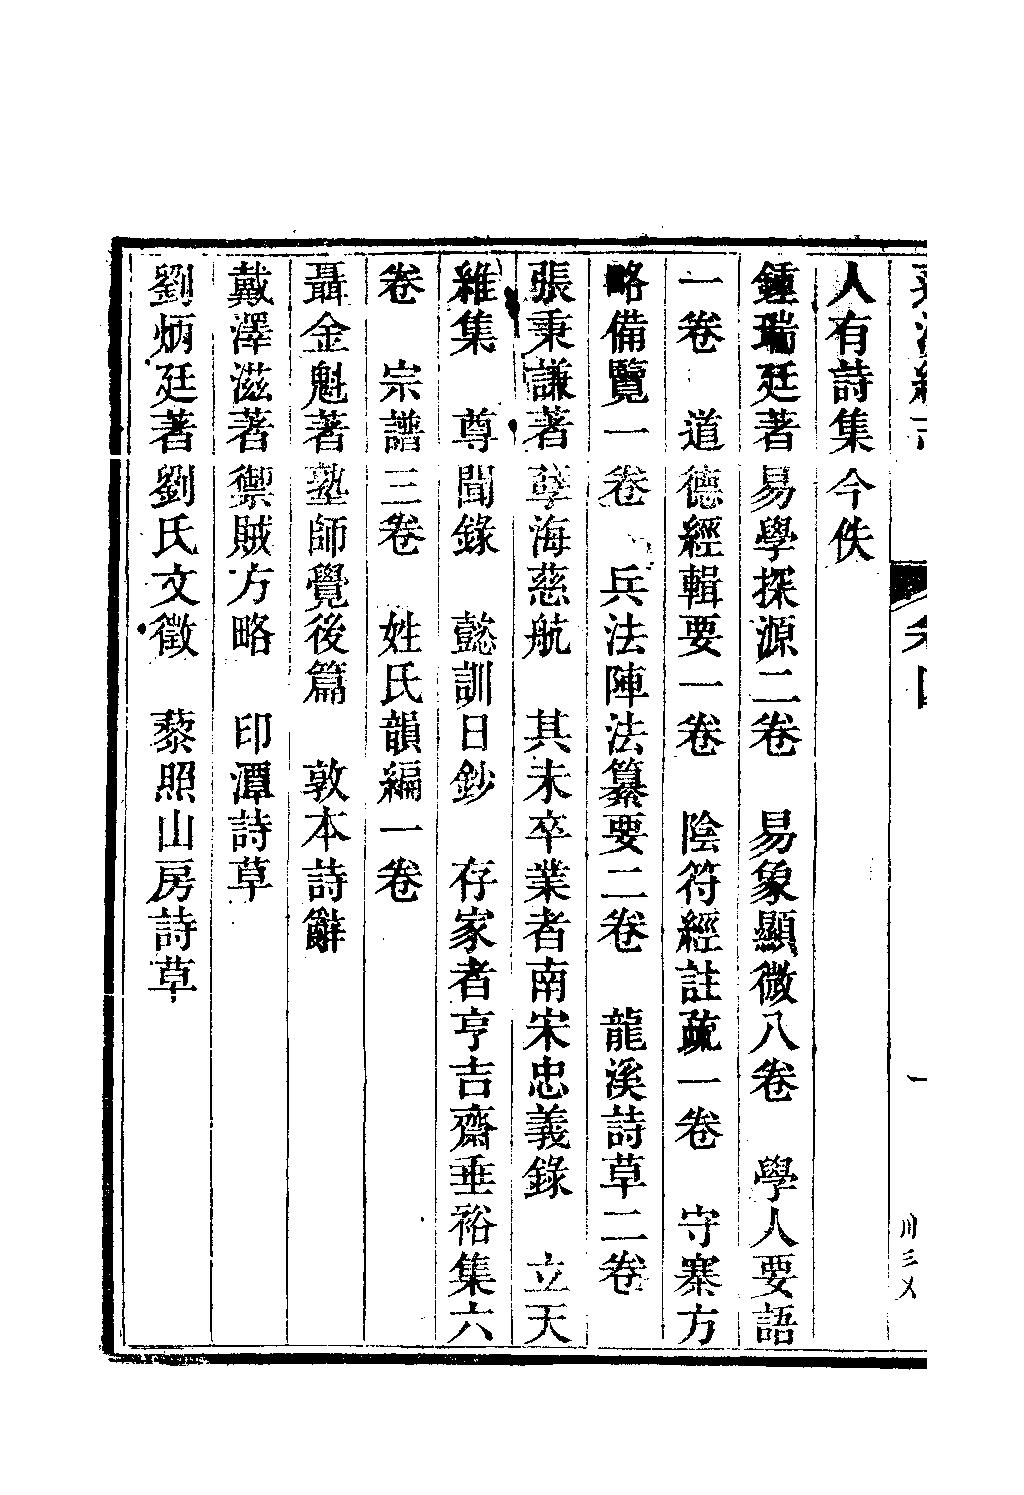 人有詩集今佚
鍾瑞廷著易學探源二卷　易象顯微八卷　學人要語
一卷　道德經輯要一卷　陰符經註疏一卷　守寨方
略備覽一卷　兵法陣法纂要二卷　龍溪詩草二卷
張秉謙著孽海慈航　其未卒業者南宋忠義錄　立天
雜集　尊聞錄　懿訓日鈔　存家者亨吉齋垂裕集六
卷　宗譜三卷　姓氏韻編一卷
聶金魁著塾師覺後篇　敦本詩辭
戴澤滋著禦賊方略　印潭詩草
劉炳廷著劉氏文徵　藜照山房詩草